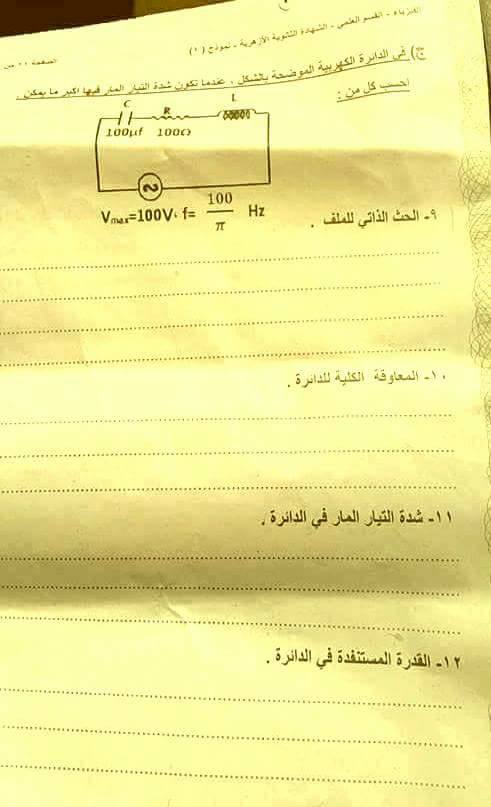 الفيزياء - القسم العلمي - الشهادة الثانوية الأزهرية - نموذج (١)
الصفحة
ج) في الدائرة الكهربية الموضحة بالشكل ، عندما تكون شدة التيار المار فيها أكبر ما يمكن .
احسب كل من :
C R L
100μf 100Ω
Vmax=100V، f= 100/π Hz
٩- الحث الذاتي للملف .
١٠- المعاوقة الكلية للدائرة .
١١- شدة التيار المار في الدائرة .
١٢- القدرة المستنفدة في الدائرة .